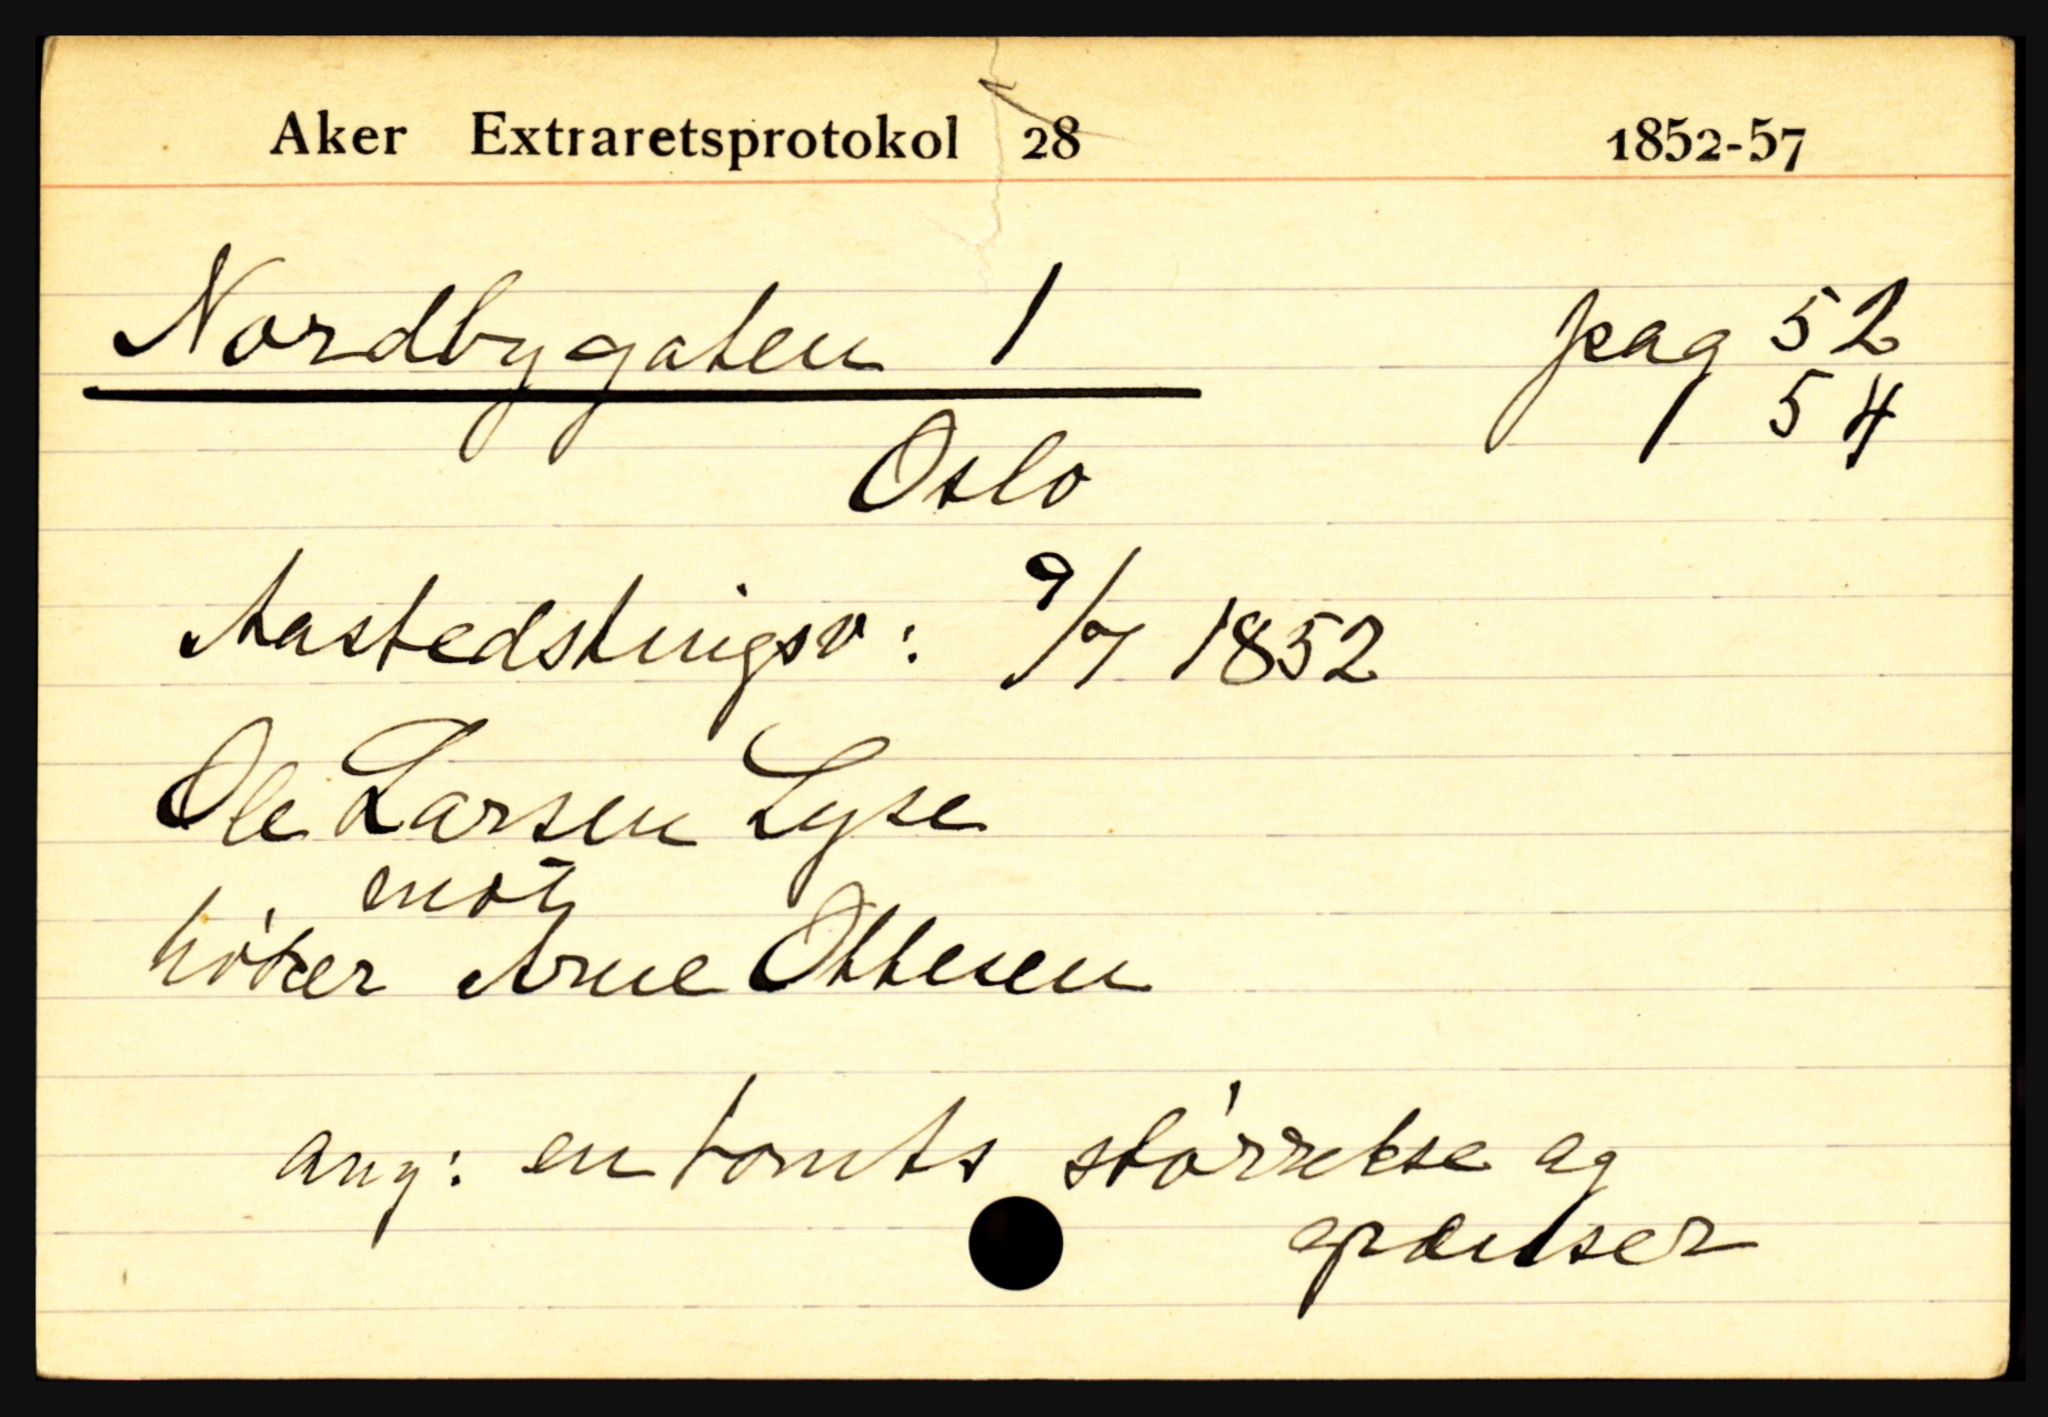 Aker Extraretsprotokol 28 1852-57
Nordbygaten 1 pag 52
54
Oslo
Aastedstingsv: 9/7 1852
Ole Larsen Lyse
mot
höker Arne Ottesen
ang: en tomts störrelse og
grænser